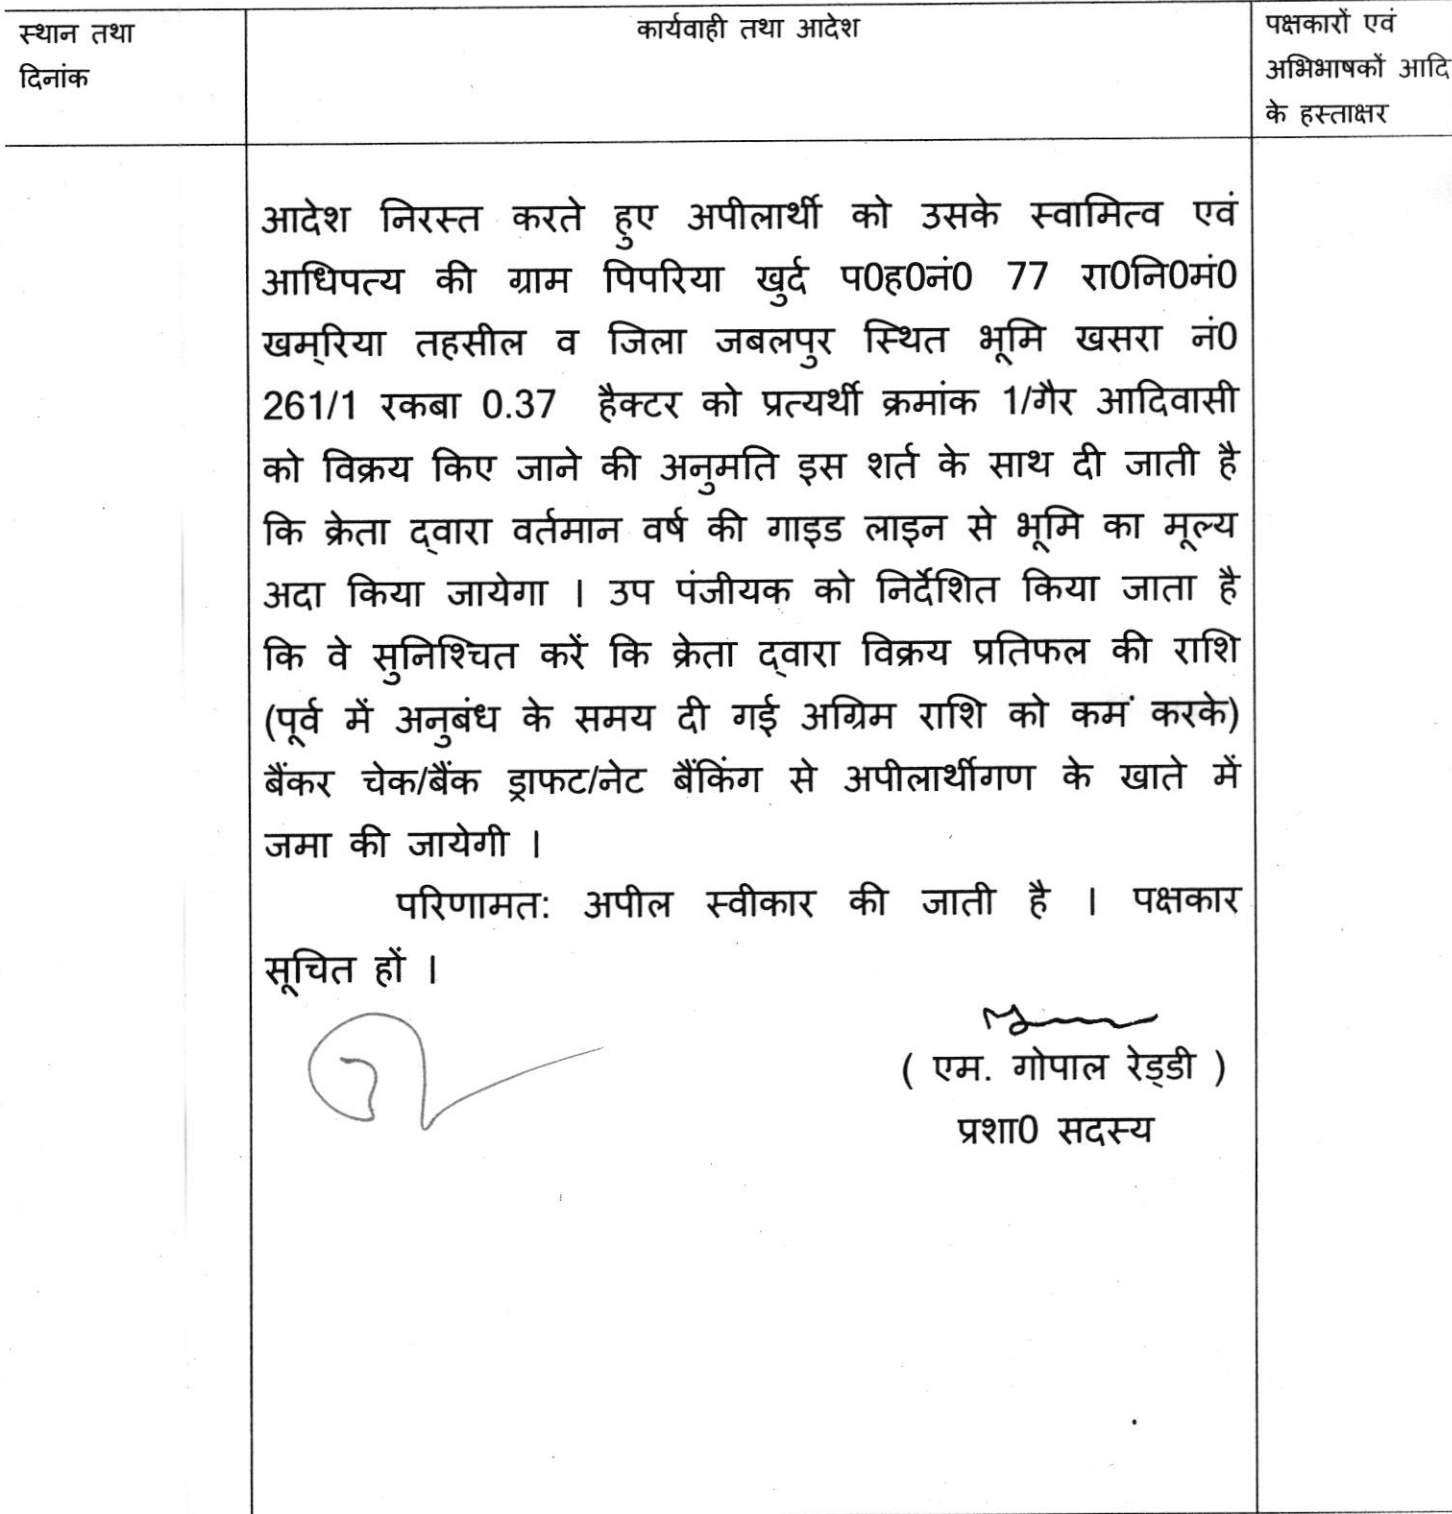 स्थान तथा
दिनांक
कार्यवाही तथा आदेश
पक्षकारों एवं
अभिभाषकों आदि
के हस्ताक्षर
आदेश निरस्त करते हुए अपीलार्थी को उसके स्वामित्व एवं
आधिपत्य की ग्राम पिपरिया खुर्द प0ह0नं0 77 रा0नि0मं0
खम्‌रिया तहसील व जिला जबलपुर स्थित भूमि खसरा नं0
261/1 रकबा 0.37 हैक्टर को प्रत्यर्थी क्रमांक 1/गैर आदिवासी
को विक्रय किए जाने की अनुमति इस शर्त के साथ दी जाती है
कि क्रेता द्वारा वर्तमान वर्ष की गाइड लाइन से भूमि का मूल्य
अदा किया जायेगा । उप पंजीयक को निर्देशित किया जाता है
कि वे सुनिश्चित करें कि क्रेता द्वारा विक्रय प्रतिफल की राशि
(पूर्व में अनुबंध के समय दी गई अग्रिम राशि को कम करके)
बैंकर चेक/बैंक ड्राफट/नेट बैंकिंग से अपीलार्थीगण के खाते में
जमा की जायेगी ।
परिणामत: अपील स्वीकार की जाती है । पक्षकार
सूचित हों ।
( एम. गोपाल रेड्डी )
प्रशा0 सदस्य